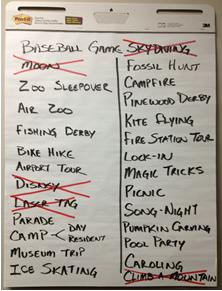 Post-it
BASEBALL GAME
MOON
ZOO SLEEPOVER
AIR ZOO
FISHING DERBY
BIKE HIKE
AIRPORT TOUR
DISNEY
LASER TAG
PARADE
CAMP < DAY
RESIDENT
MUSEUM TRIP
ICE SKATING
SKYDIVING
FOSSIL HUNT
CAMPFIRE
PINEWOOD DERBY
KITE FLYING
FIRE STATION TOUR
LOCK-IN
MAGIC TRICKS
PICNIC
SONG-NIGHT
PUMPKIN CARVING
POOL PARTY
CAROLING
CLIMB A MOUNTAIN